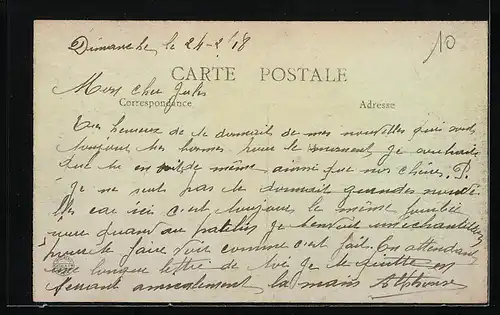 Dimanche le 24-2-18
10
CARTE POSTALE
Mon cher Jules
Correspondance
Adresse
heureux de te donnait de mes nouvelles qui sont
toujours bonnes pour le moment je souhaite
que tu en soit de même ainsi que nos chères P.
je ne peut pas te donnait grandes nouvel
les car ici c'est toujours le même
quand au je t'envoit un échantillon
pour te faire voir comme c'est fait. En attendant
une longue lettre de toi je te quitte en
serrant amicalement la main Alphonse